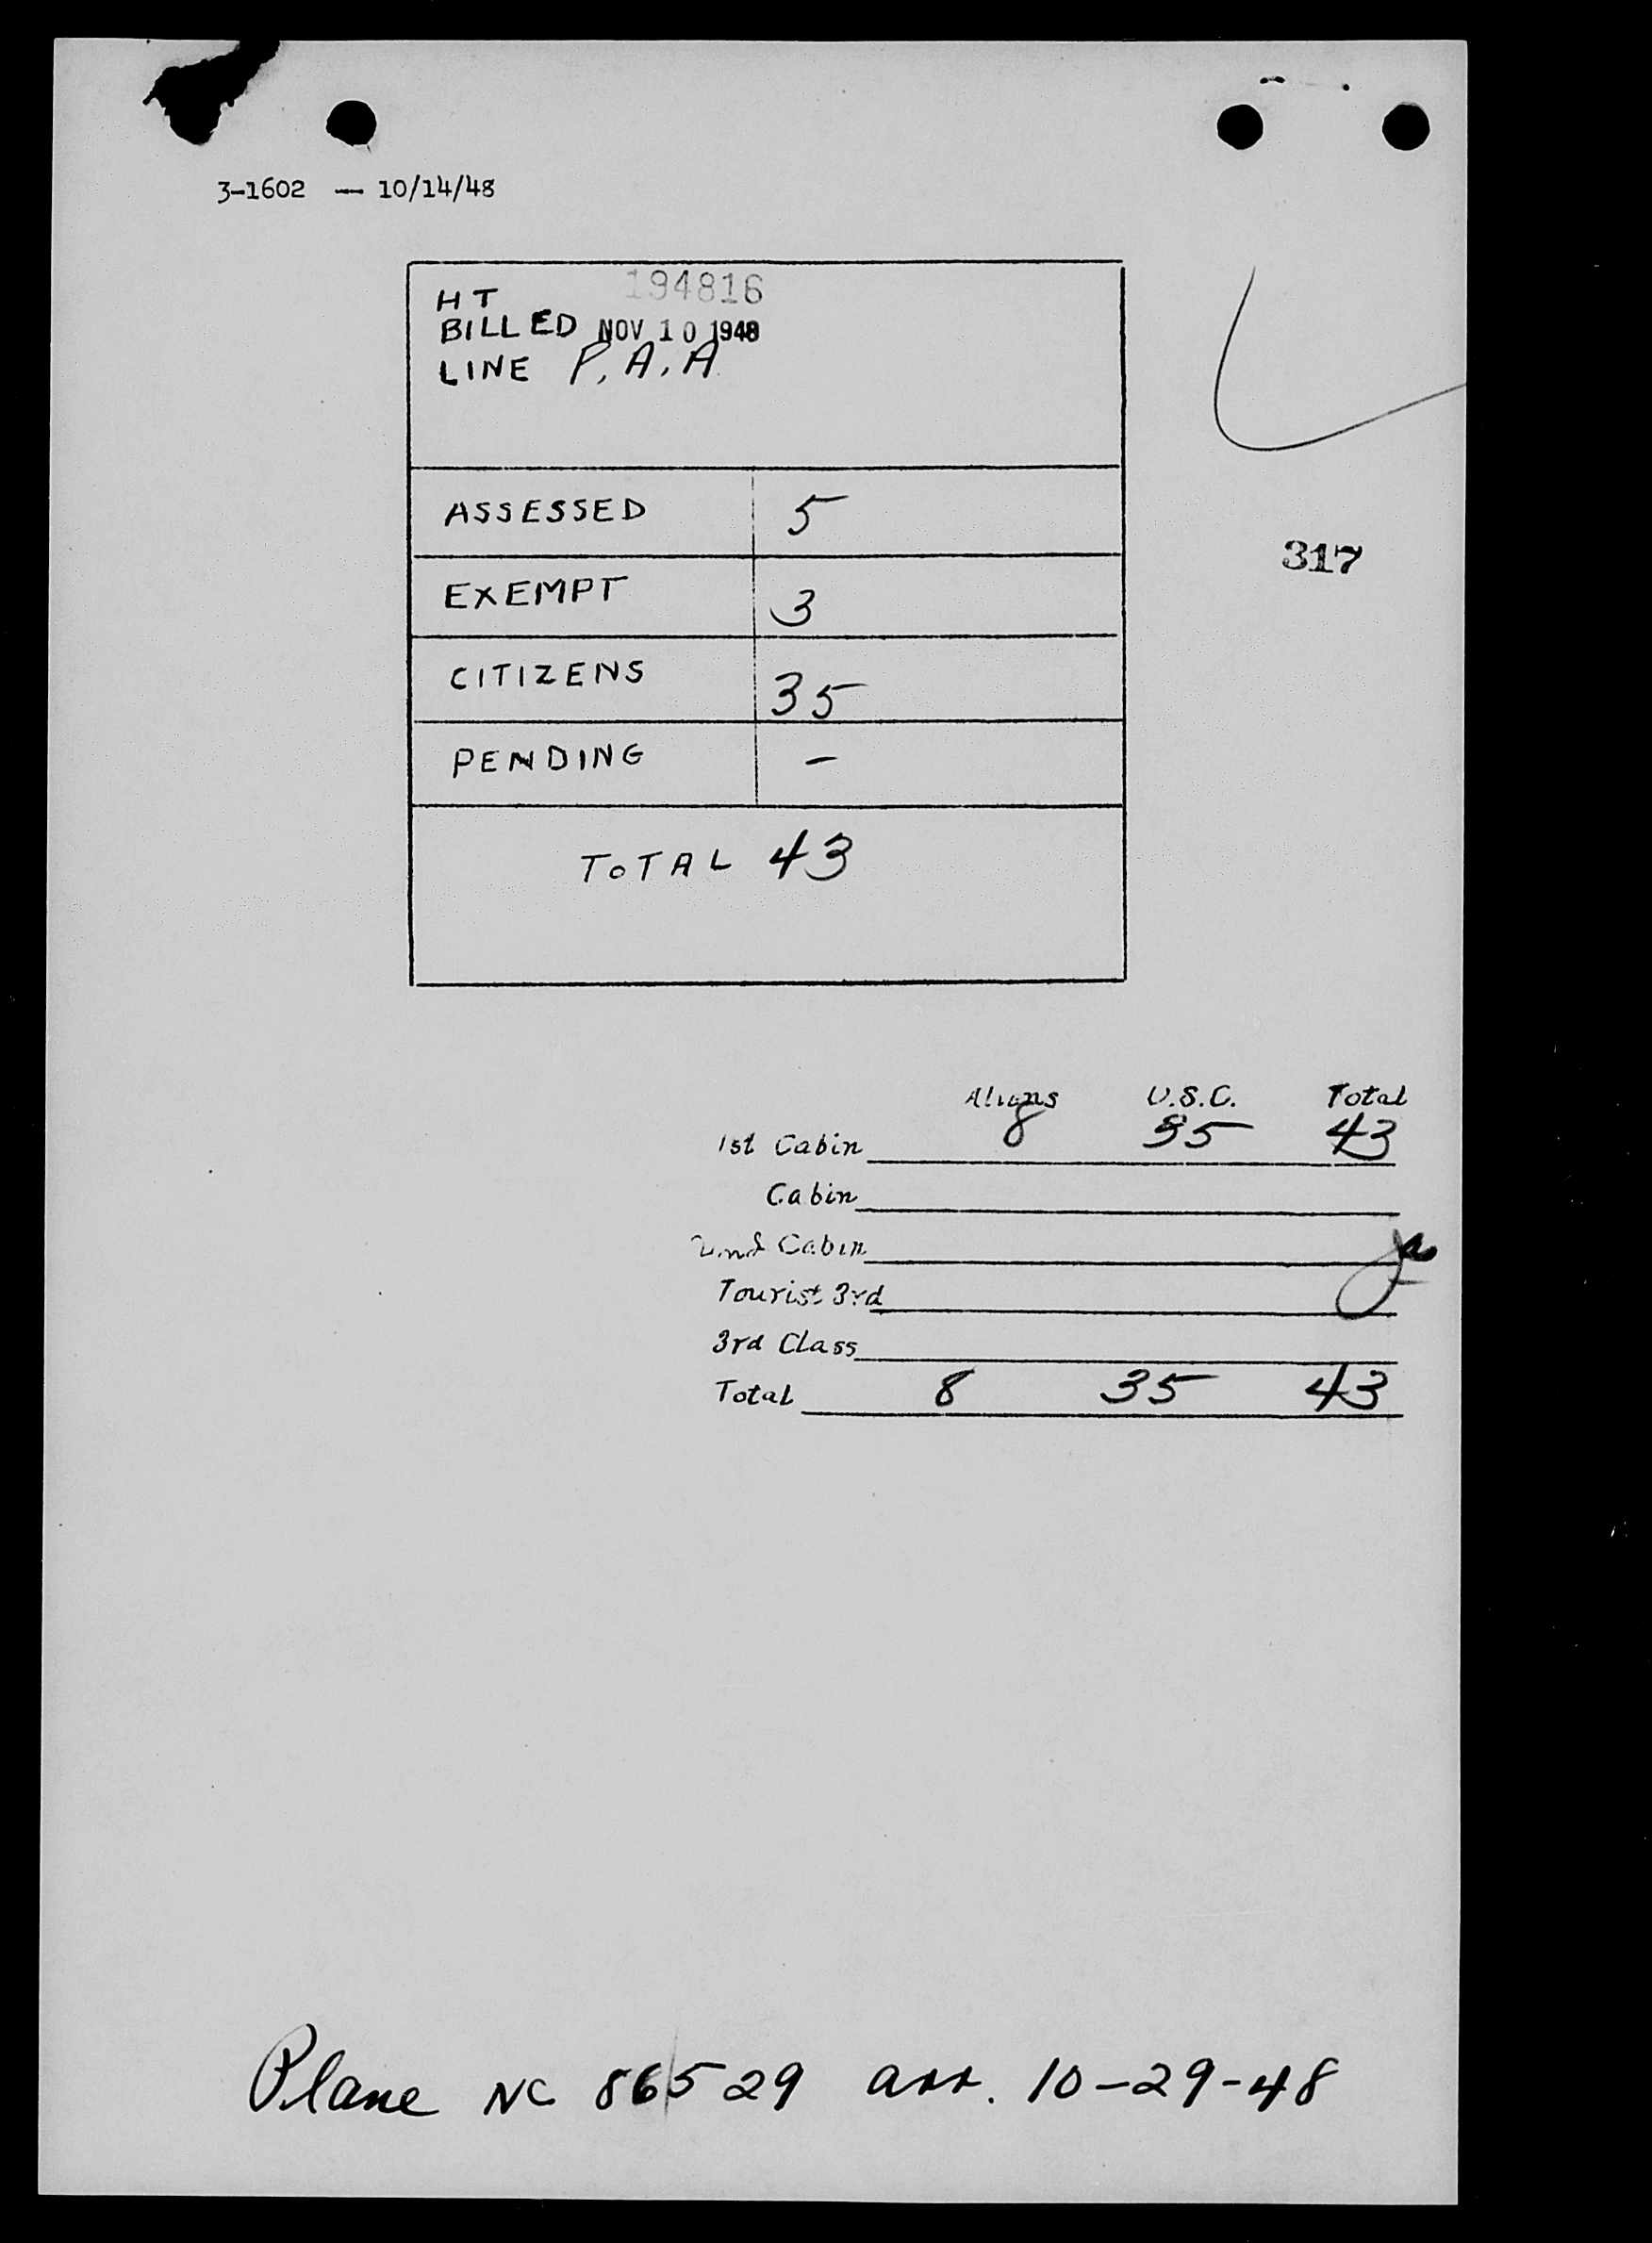 3-1602 — 10/14/48
194816
HT
BILLED NOV 10 1948
LINE P.A.A.
ASSESSED 5
317
EXEMPT 3
CITIZENS 35
PENDING –
TOTAL 43
Aliens U.S.C. Total
1st Cabin 8 35 43
Cabin
2nd Cabin
Tourist 3rd
3rd Class
Total 8 35 43
Plane NC 86529 arr. 10-29-48